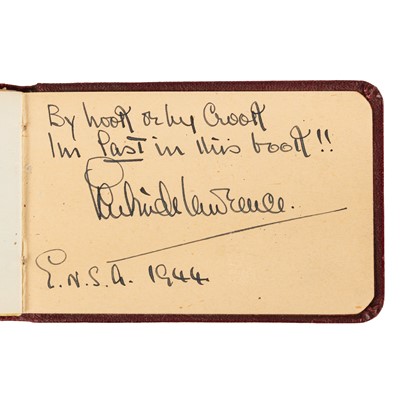 By hook or by Crook
Im Last in this book!!
Gertrude Lawrence.
E.N.S.A. 1944